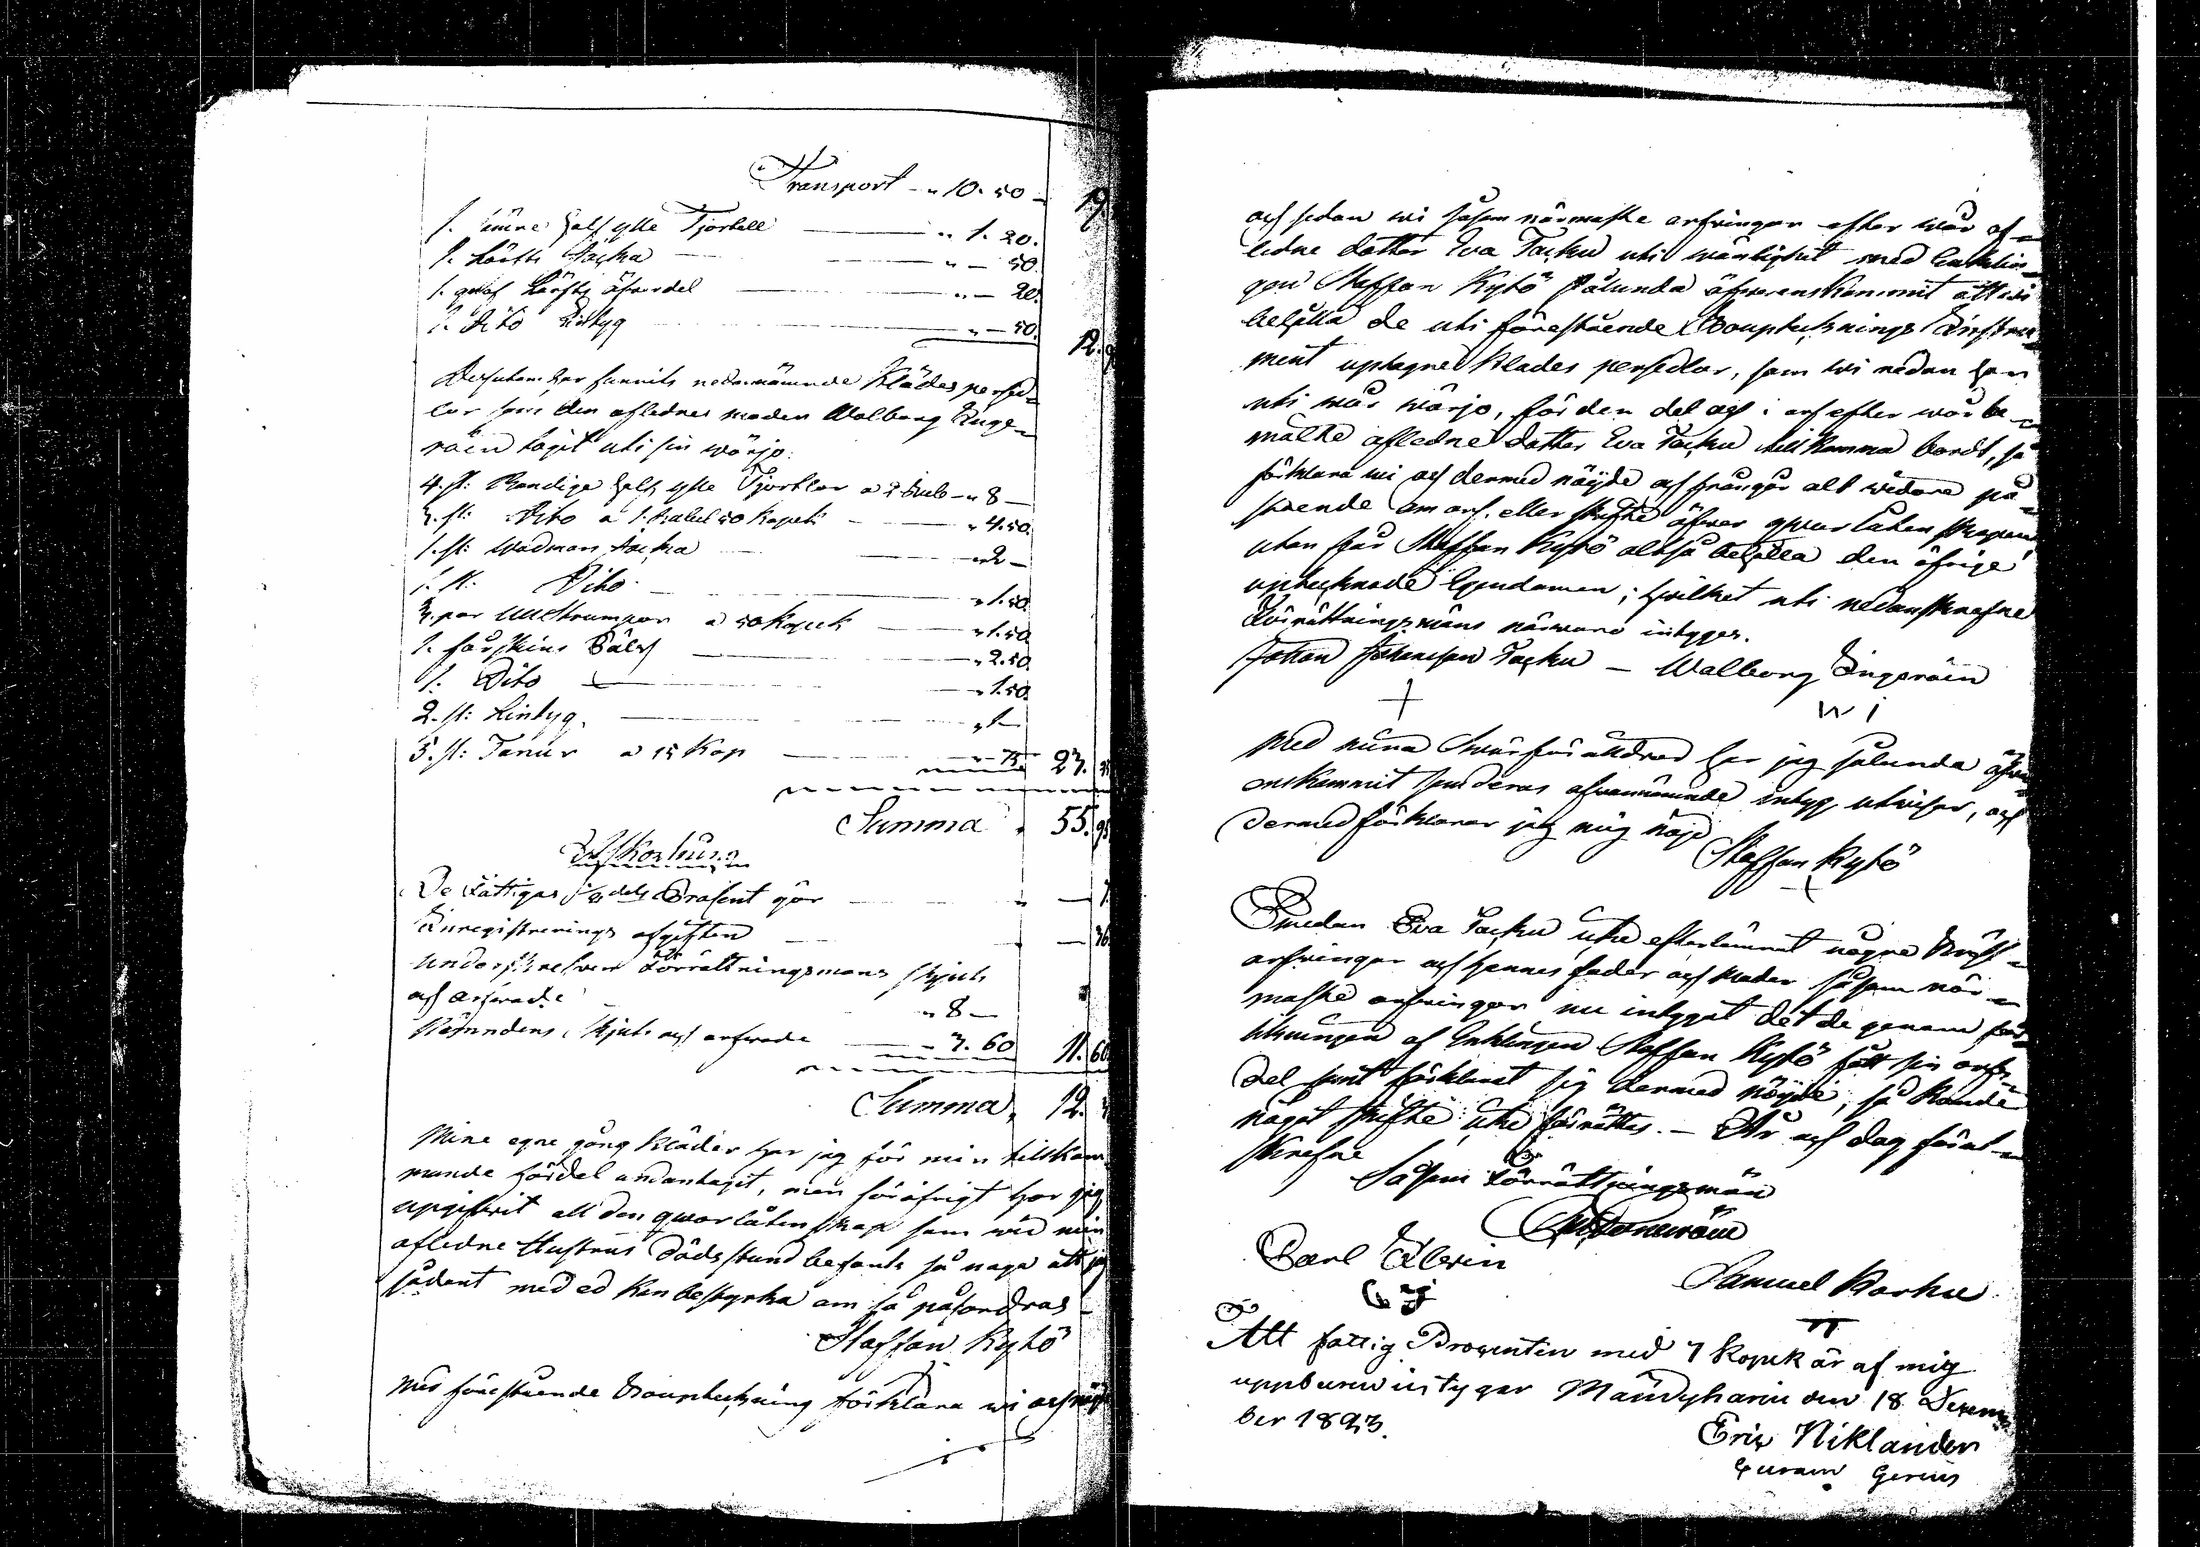 Transport - „ 10. 50 - 19
1. sämre half ylle Tjortell „ 1. 20.
1. Lärfts Täcka „ - 50.
1. gråf Lärfts öfverdel „ - 20.
1. Dito Lintyg „ - 50. 12.
Dessutom har funnits nedannämnde Klädes persed-
lar som den aflednes moder Walborg Inge-
räin tagit uti sin wårjo:
4. st: Randige half ylle Tjortlar a 2 Rub „ 8 -
3. st: Dito a 1. Rubel 50 Kopek „ 4. 50.
1. st: Wadmans tacka „ 2 -
1. st: Dito „ 1. 50.
3. par Ullstrumpor a 50 Kopek „ 1. 50.
1. fårskins Päls „ 2. 50.
1. Dito „ 1. 50.
2. st: Lintyg „ 1 -
5. st: Tanur a 15 Kop „ - 75 23.
Summa „ 55. 95
Afkortning
De Fattigas 1/8 dels Prosent gör „ - 7.
Inregistrerings afgiften - 36.
Underskrefven Förrättningsmans skjuts
och arfwode „ 8 -
Nämndens skjuts och arfwode - 3. 60 11. 60
Summa „ 12.
Mine egne gång kläder har jag för min tillkom-
mande fördel undantagit, men föröfrigt har jag
upgifvit all den qwarlåtenskap som wid min
afledne Hustrus Dödsstund befants så noga att jag
sådant med ed kan bestyrka om så påfordras -
Staffan Kyhö
Med förestående Bouptekning förklara wi oss nöjde
och sedan wi såsom närmaste arfvingar efter wår af-
ledne dotter Eva Tacku uti wänlighet med Enklin-
gen Staffan Kyhö sålunda öfverenskommit att wi
behålla de uti förestående Bouptecknings Instru-
ment uptagne Klädes persedlar, som wi redan har
uti wår wärjo, för den del oss i arf efter wår be-
mälte afledne dotter Eva Tacku tillkomma bordt, så
förklara wi oss dermed nöjde och frångår alt widare på-
stående om arf eller skifte öfver qwarlåtenskapen
utan får Staffan Kyhö altså behålla den öfrige
uptecknade Egendomen; hwilket uti nedanskrefne
Förrättningsmäns närwaro intyges.
Johan Johansson Tacku - Walborg Ingeräin
Med mina Swärföräldrar har jag sålunda öfver-
enskommit som deras ofvannämnde intyg utwisar, och
dermed förklarar jag mig nöjd
Staffan Kyhö
Emedan Eva Tacku icke efterlämnat några Bröst-
arfvingar och hennes fader och moder såsom när-
maste arfvingar nu intygat det de genom för-
likningen af Enklingen Staffan Kyhö fått sin arfs-
del samt förklarat sig dermed nöjde, så kunde
något skifte icke förrättas. - År och dag förut-
skrefne
Såsom Förrättningsmän
Carl Elerin
Samuel Korhu
Att fattig Procenten med 7 kopek är af mig
uppburen intygar Mändyharju den 18 Decem-
ber 1823.
Eric Niklander